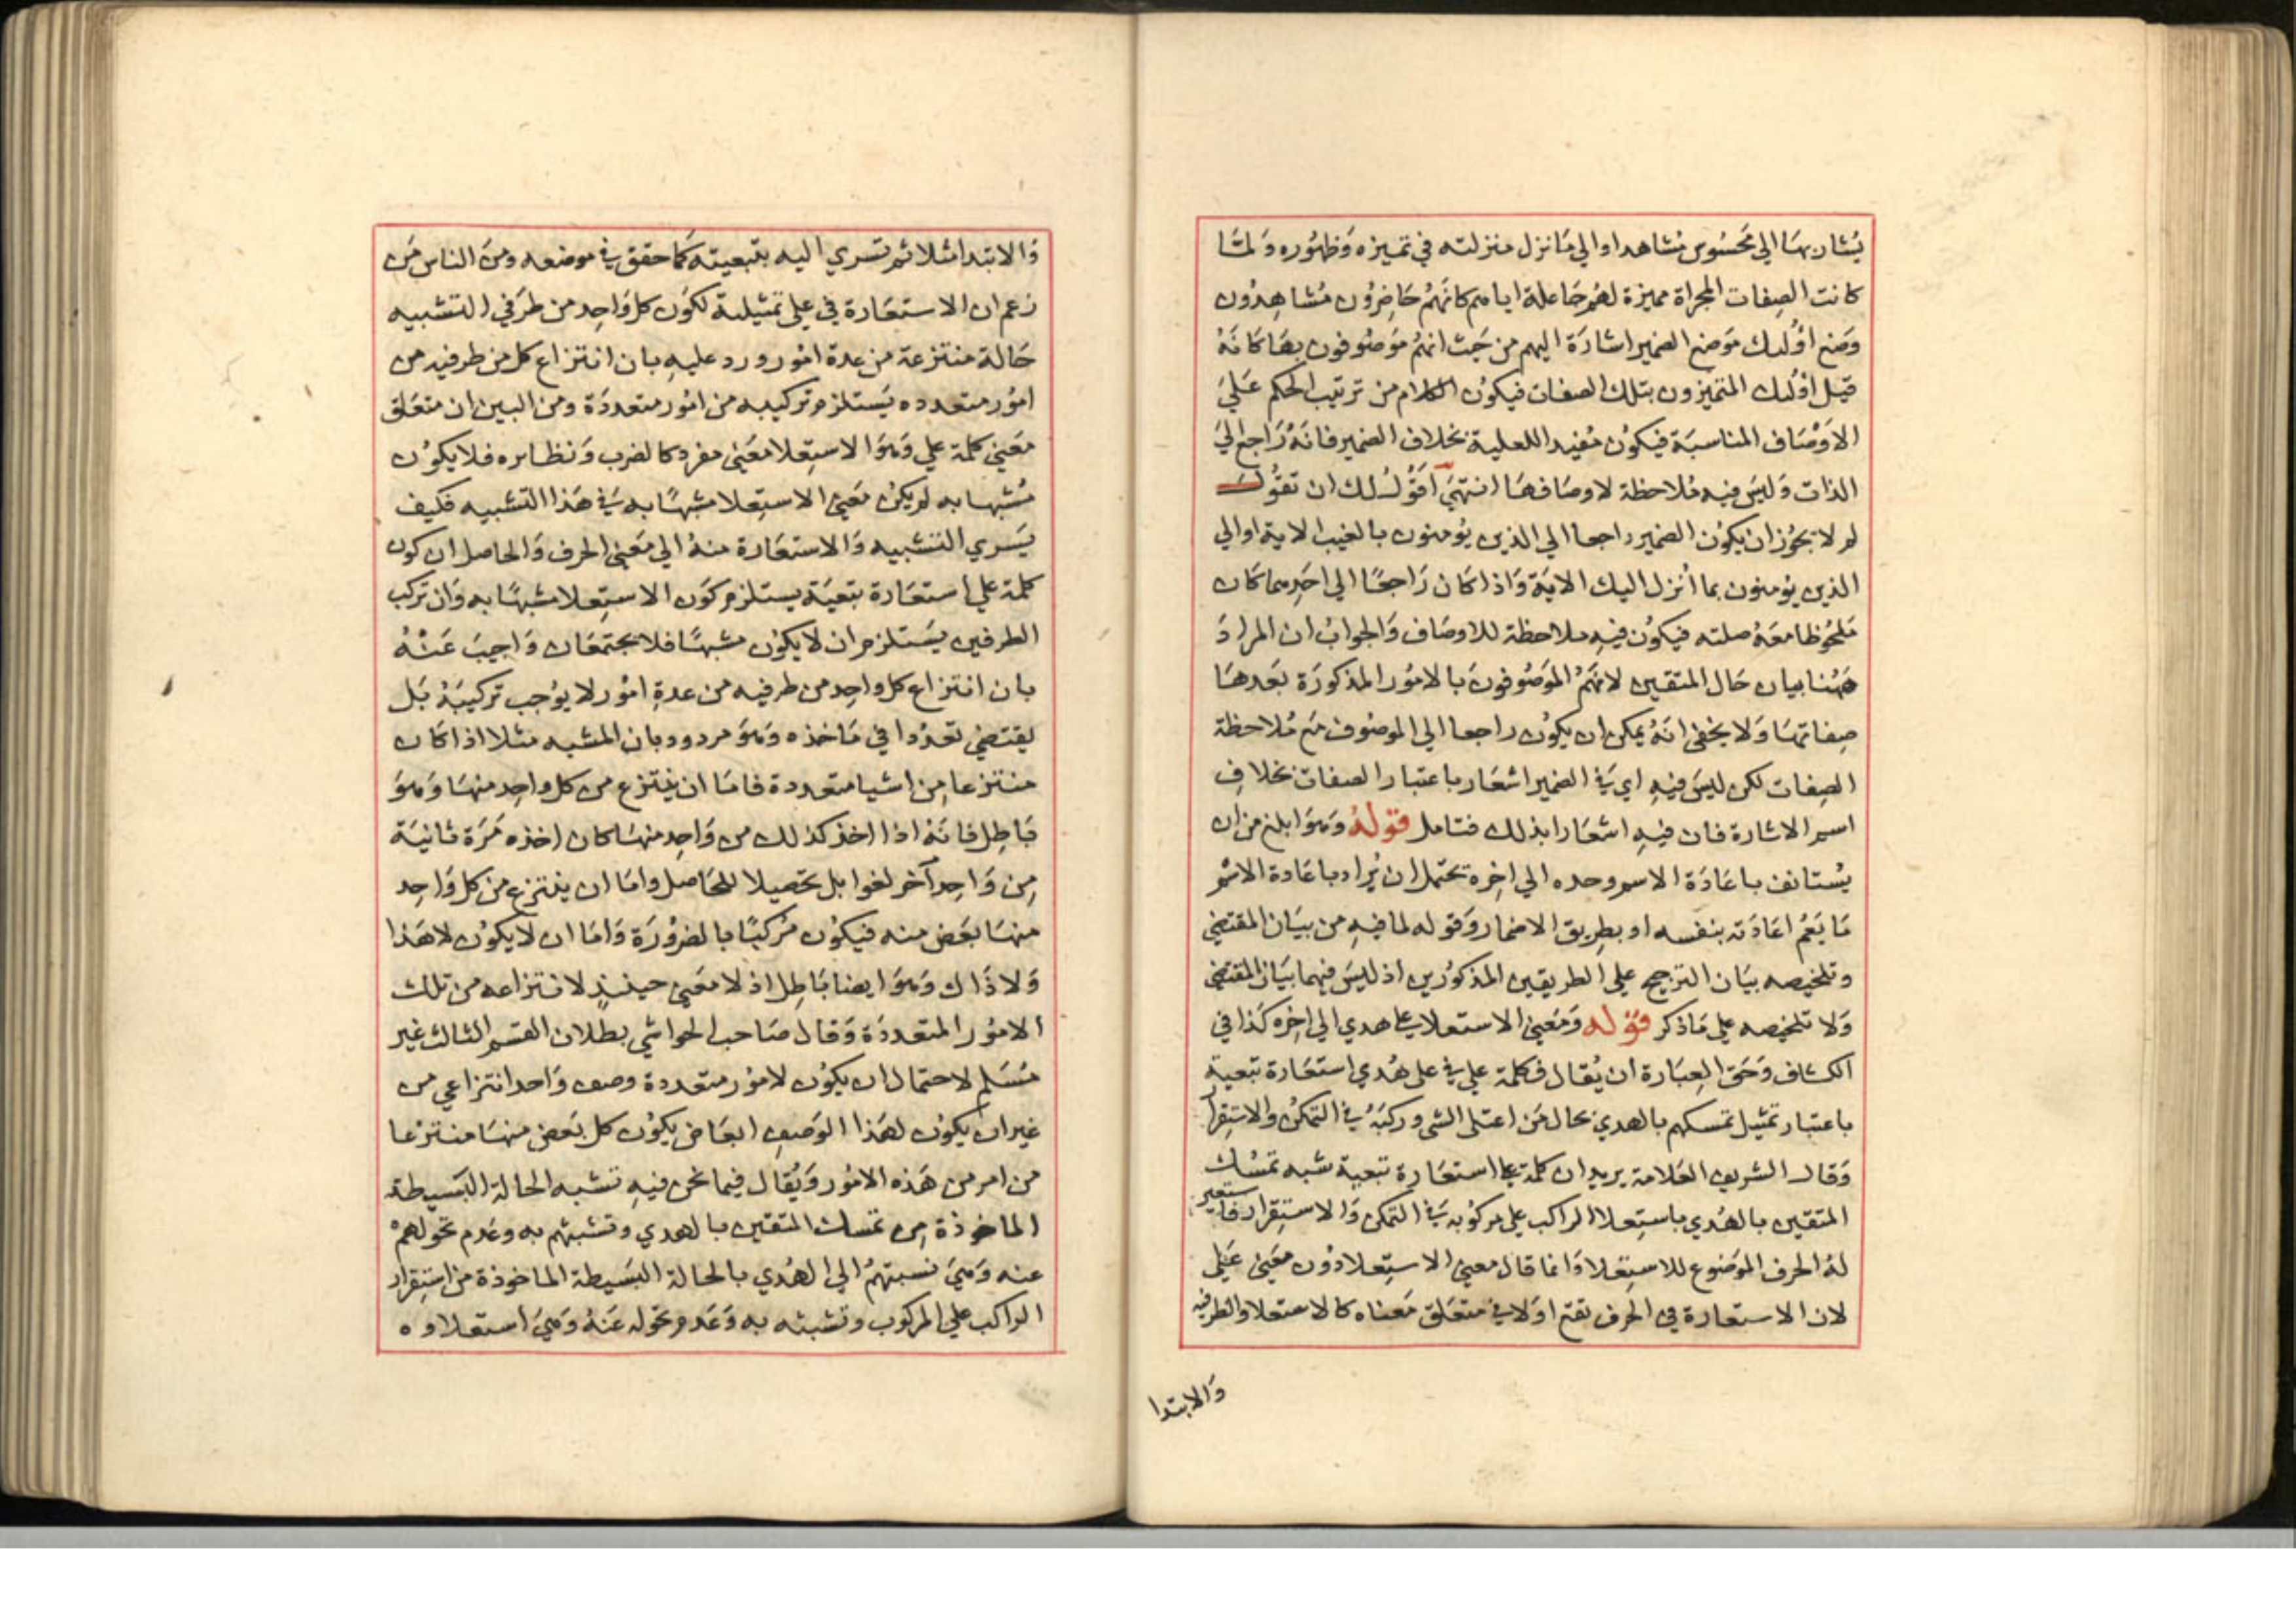 يُشار بهَا الي محَسُوس مُشاهد او الي مَا نزل منزلته في تميزه وَظهُوره وَلمَّا
كانت الصِفات المجراة مميزة لهُم جَاعلة اياهم كانهُم حَاضِرُون مُشاهِدُون
وَضع اوُلئك مَوضع الضمير اشارَة اليهم من حَيث انهُم مَوصُوفون بهَا كانَهُ
قيل اوُلئك المتميزون بتلك الصفات فيكوُن الكلام من ترتيب الحكم عَليَ
الاَوْصَاف المناسبَة فيكوُن مُفيد اللعلية بخلاف الضمير فانهُ رَاجع اليَ
الذات وَليسَ فيه مُلاحظة لاوصَافهَا انتهيَ اَقوُل لك ان تقوُل
لم لا يجوُز ان يكوُن الضمير راجعا الي الذين يؤمنوُن بالغيب الاية او الي
الذين يؤمنون بما اُنزل اليك الايَة وَاذا كَان رَاجعًا الي احَدهما كَان
مَلحُوظا معَهُ صلته فيكوُن فيهِ ملاحظة للاوصَاف وَالجوابُ ان المرادَ
هَهُنا بيان حَال المتقين لانهَّمُ المَوصُوفونَ بالامُور المذكورَة بَعدهَا
صِفاتهَا وَلا يخفي انهُ يمكن ان يكوُن راجعا الي الموصُوف معَ مُلاحظة
الصِفات لكن ليسَ فيهِ اي فيَ الضمير اشعَار باعتبار الصفات بخلافِ
اسم الاشارة فان فيهِ اشعَارا بذلك فتامل قوَلهُ وَهوَ ابلغ من ان
يسُتانف باعَادَة الاسم وحده الي اخِره تحتمل ان يُراد باعَادة الاسْم
مَا يَعُم اعَادَته بنفسه او بطِريق الاضمار وَقوله لما فيهِ من بيَان المقتضي
وتلخيصه بيَان الترجيح علي الطريقين المذكوُرين اذ ليسَ فيهما بيَان المقتضي
وَلا تلخيصه علي مَا ذكر قوَله وَمعَني الاستعلا في علي هدي الي اخِره كذا في
الكشاف وَحَق العِبَارة ان يُقال فكلمة علي في علي هُدي استعَارة تبعية
باعتبار تمثيل تمسكهم بالهدي بحال مَن اعتلي الشي وركبَهُ في التمكن والاستِقرار
وَقال الشريف العَلامة يريد ان كلمة علي استعَارة تبعية شبه تمسُك
المتقين بالهُدي باستِعلا الراكب علي مركوُبه في التمكن وَالاستِقرار فاستعير
لهُ الحرف الموَضوُع للاستِعلا وَانما قال معني الاستِعلا دوُن معَني عَلي
لان الاستعارة في الحرف تقع اوَلا في متعَلق معَناه كالاستعلا والظرفيه
وَالابتدا
وَالابتدا مثلا ثم تسري اليه بتبعيته كَما حقق في موضعه ومنَ الناس مَن
زعم ان الاستعَارة في علي تمثيلية لكوَن كل وَاحِد من طرَفي التشبيه
حَالة منتزعة من عدة امُور ورد عليهِ بان انتزاع كل من طرفيه من
امُور متعدده يَستلزم تركيبه من امُور متعددَة ومن البين ان متعَلق
معَني كلمة علي وَهوَ الاستِعلا معَني مفرد كالضرب وَنظايره فلا يكوُن
مُشبها به لم يكن معَني الاستِعلا مشبهًا به في هَذا التشبيه فكيف
يسَري التشبيه وَالاستعَارة منهُ الي معَني الحرف وَالحاصل ان كون
كلمة علي استعَارة تبعيَة يستلزم كوَن الاستِعلا مشبهًا به وَان تركب
الطرفين يسَتلزم ان لا يكوُن مشبهًا فلا يجتمعَان وَاجيبَ عَنهُ
بان انتزاع كل واحِد من طرفيه من عدةِ امُور لا يوُجب تركيبَهُ بَل
يقتضِي تعَدُدا في مَاخذه وَهوَ مردود بان المشبه مثلا اذا كان
منتزعا مِن اشيا متعددة فامَا ان ينتزع من كل واحِد منهَا وَهوَ
بَاطِل فانَهُ اذا اخذ كذلك من وَاحِد منهَا كان اخذه مَرَة ثانيَة
مِن وَاحِد آخر لغوا بل تحصيلا للحَاصل وامَا ان ينتزع من كل وَاحِد
منهَا بعَض منه فيكوُن مُركبًا بالضرُورَة وَامَا ان لا يكوُن لا هَذا
وَلا ذَاك وَهوَ ايضا بَاطِل اذ لا معَني حينئذٍ لانتزاعه من تلك
الامُور المتعددَة وَقال صَاحب الحواشي بطلان القسَم الثالث غير
مُسَلم لاحتمال ان يكوُن لامُور متعددة وصف وَاحد انتزاعي من
غير ان يكوُن لهَذا الوَصفِ ابعَاض يكوُن كل بعَض منهَا منتزعا
من امر من هَذه الامُور وَيُقال فيما نحن فيهِ تشبه الحالة البَسيطة
الماخوذة مِن تمسك المتقين بالهدي وتشبثهم به وعَدم تحولهم
عنه وَهيَ نسبتهُم الي الهُدي بالحالة البَسيطة الماخوذة من استِقرار
الراكب علي المركوب وتشبثه به وَعَدم تحوله عَنهُ وَهيَ استعلاوه